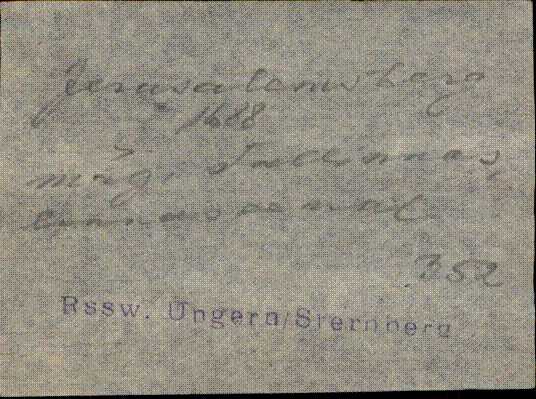 Jerusalemsberg
1688
mägi Tallinnas,
352
Rssw. Ungern/Sternberg